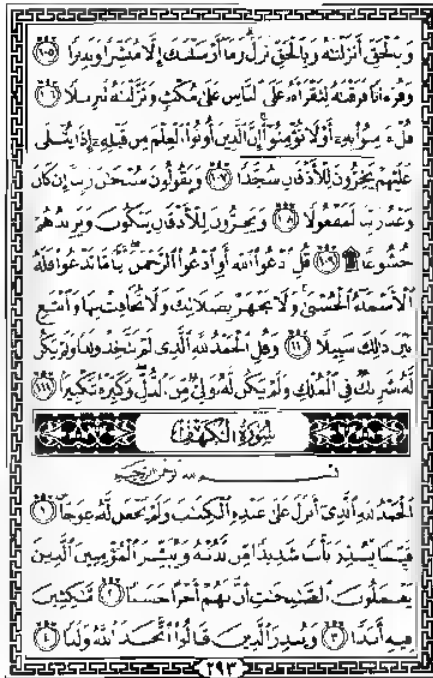 وَبِالْحَقِّ أَنزَلْنَاهُ وَبِالْحَقِّ نَزَلَ وَمَا أَرْسَلْنَاكَ إِلَّا مُبَشِّرًا وَنَذِيرًا ١٠٥
وَقُرْءَانًا فَرَقْنَاهُ لِتَقْرَأَهُ عَلَى النَّاسِ عَلَى مُكْثٍ وَنَزَّلْنَاهُ تَنزِيلًا ١٠٦
قُلْ ءَامِنُوا بِهِ أَوْ لَا تُؤْمِنُوا إِنَّ الَّذِينَ أُوتُوا الْعِلْمَ مِن قَبْلِهِ إِذَا يُتْلَى
عَلَيْهِمْ يَخِرُّونَ لِلْأَذْقَانِ سُجَّدًا ١٠٧ وَيَقُولُونَ سُبْحَانَ رَبِّنَا إِن كَانَ
وَعْدُ رَبِّنَا لَمَفْعُولًا ١٠٨ وَيَخِرُّونَ لِلْأَذْقَانِ يَبْكُونَ وَيَزِيدُهُمْ
خُشُوعًا ۩ ١٠٩ قُلِ ادْعُوا اللَّهَ أَوِ ادْعُوا الرَّحْمَٰنَ أَيًّا مَّا تَدْعُوا فَلَهُ
الْأَسْمَاءُ الْحُسْنَىٰ وَلَا تَجْهَرْ بِصَلَاتِكَ وَلَا تُخَافِتْ بِهَا وَابْتَغِ
بَيْنَ ذَٰلِكَ سَبِيلًا ١١٠ وَقُلِ الْحَمْدُ لِلَّهِ الَّذِي لَمْ يَتَّخِذْ وَلَدًا وَلَمْ يَكُن
لَّهُ شَرِيكٌ فِي الْمُلْكِ وَلَمْ يَكُن لَّهُ وَلِيٌّ مِّنَ الذُّلِّ وَكَبِّرْهُ تَكْبِيرًا ١١١
سُورَةُ الْكَهْفِ
بِسْمِ اللَّهِ الرَّحْمَٰنِ الرَّحِيمِ
الْحَمْدُ لِلَّهِ الَّذِي أَنزَلَ عَلَىٰ عَبْدِهِ الْكِتَابَ وَلَمْ يَجْعَل لَّهُ عِوَجًا ١
قَيِّمًا لِّيُنذِرَ بَأْسًا شَدِيدًا مِّن لَّدُنْهُ وَيُبَشِّرَ الْمُؤْمِنِينَ الَّذِينَ
يَعْمَلُونَ الصَّالِحَاتِ أَنَّ لَهُمْ أَجْرًا حَسَنًا ٢ مَّاكِثِينَ
فِيهِ أَبَدًا ٣ وَيُنذِرَ الَّذِينَ قَالُوا اتَّخَذَ اللَّهُ وَلَدًا ٤
٢٩٣